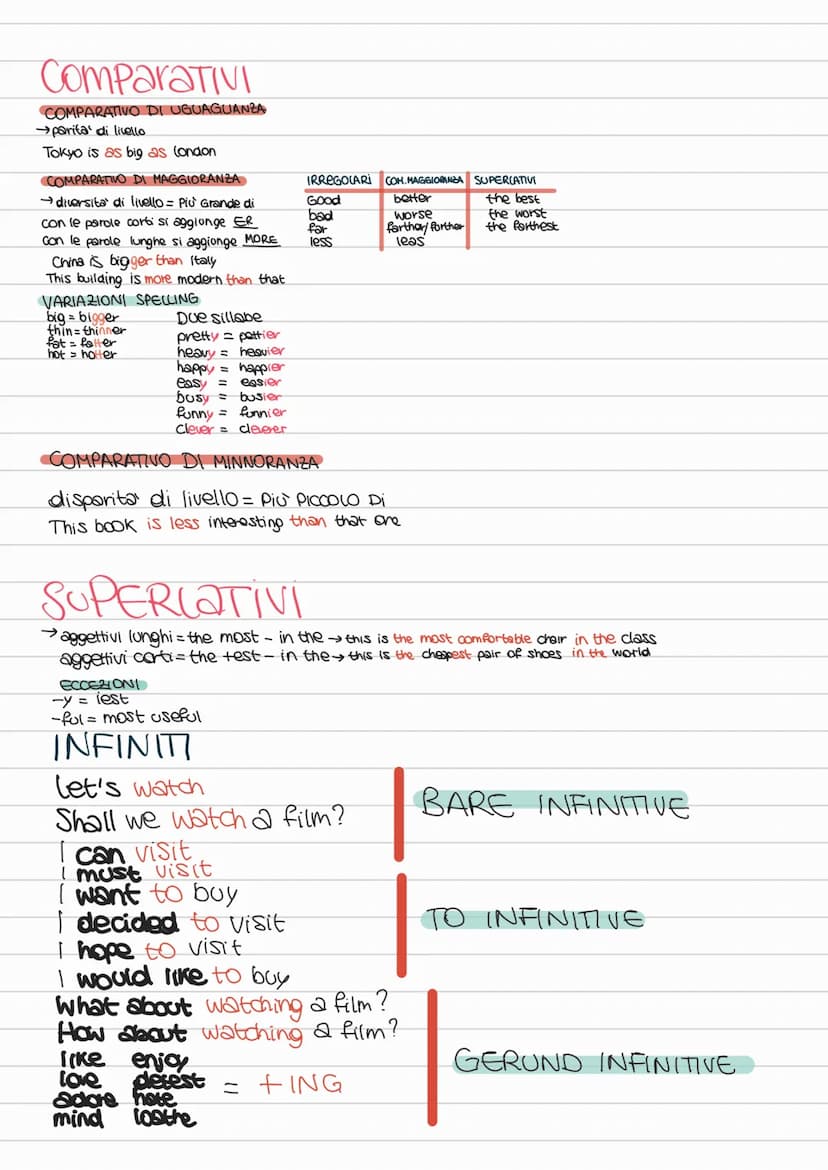 COMPARATIVI
COMPARATIVO DI UGUAGLIANZA
→ parita' di livello
Tokyo is as big as London
COMPARATIVO DI MAGGIORANZA
→ diversita' di livello = Più Grande di
con le parole corti si aggiunge ER
con le parole lunghe si aggionge MORE
China is bigger than Italy
This building is more modern than that
IRREGOLARI COM. MAGGIORANZA SUPERLATIVI
Good better the best
bad worse the worst
far farther/further the farthest
less leas
VARIAZIONI SPELLING
big = bigger
thin = thinner
fat = fatter
hot = hotter
Due sillabe
pretty = pettier
heavy = heavier
happy = happier
easy = easier
busy = busier
funny = funnier
clever = cleverer
COMPARATIVO DI MINNORANZA
disparita' di livello = Più PICCOLO Di
This book is less interesting than that one
SUPERLATIVI
→ aggettivi lunghi = the most - in the → this is the most comfortable chair in the class
aggettivi corti = the +est - in the → this is the cheapest pair of shoes in the world
ECCEZIONI
-y = iest
-ful = most useful
INFINITI
Let's watch
Shall we watch a film?
I can visit
I must visit
BARE INFINITIVE
I want to buy
I decided to visit
I hope to visit
I would like to buy
TO INFINITIVE
What about watching a film?
How about watching a film?
like enjoy
love detest = +ING
adore hate
mind loathe
GERUND INFINITIVE